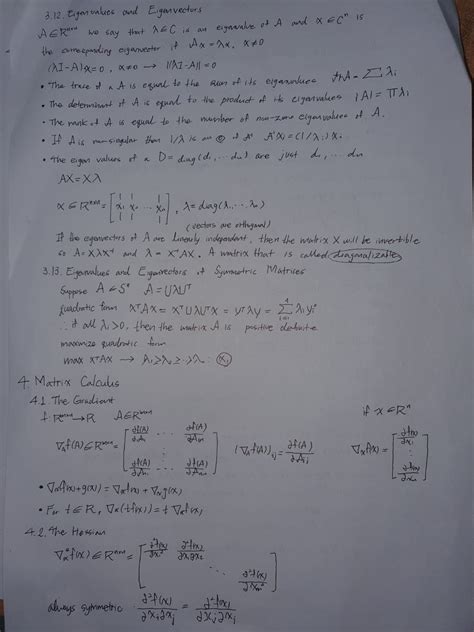 3.12. Eigenvalues and Eigenvectors
A∈Rⁿˣⁿ we say that λ∈C is an eigenvalue of A and x∈Cⁿ is
the corresponding eigenvector if Ax=λx, x≠0
(λI-A)x=0, x≠0 → |(λI-A)|=0
• The trace of a A is equal to the sum of its eigenvalues trA=∑λi
• The determinant of A is equal to the product of its eigenvalues |A|=∏λi
• The rank of A is equal to the number of non-zero eigenvalues of A.
• If A is non-singular then 1/λ is an of A⁻¹ A⁻¹xi=(1/λi)xi
• The eigen values of a D=diag(d1,...dn) are just d1,...dn
AX=XΛ
X∈Rⁿˣⁿ=[x1 x2 ... xn], Λ=diag(λ1...λn)
(vectors are orthogonal)
If the eigenvectors of A are linearly independent, then the matrix X will be invertible
so A=XΛX⁻¹ and Λ=X⁻¹AX. A matrix that is called diagonalizable
3.13. Eigenvalues and Eigenvectors of Symmetric Matrices
Suppose A∈Sⁿ A=UΛUᵀ
quadratic form xᵀAx=xᵀUΛUᵀx=yᵀΛy=∑λiyi²
∴ if all λi>0, then the matrix A is positive definite
maximize quadratic form
max xᵀAx → λ1≥λ2≥...≥λn
4. Matrix Calculus
4.1. The Gradient
f: Rᵐˣⁿ→R A∈Rᵐˣⁿ if x∈Rⁿ
(∇Af(A))ij=∂f(A)/∂Aij
• ∇x(f(x)+g(x))=∇xf(x)+∇xg(x)
• For t∈R, ∇x(tf(x))=t∇xf(x)
4.2. The Hessian
always symmetric ∂²f(x)/∂xi∂xj=∂²f(x)/∂xj∂xi